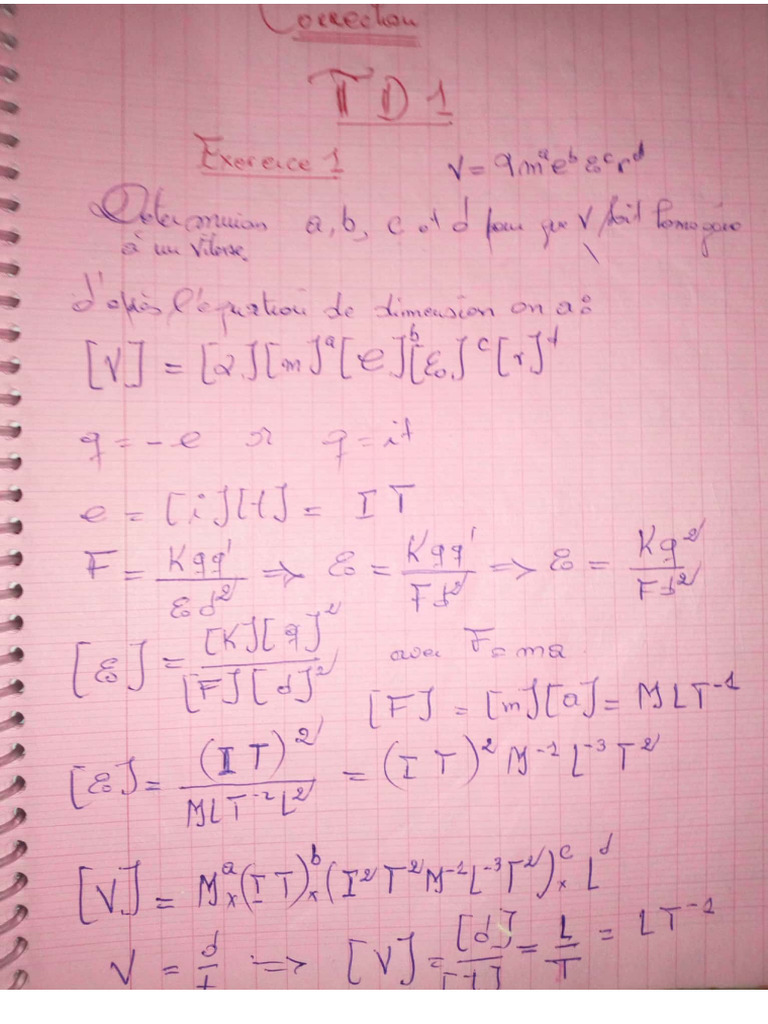 Correction
TD1
Exercice 1
V = α mᵃ eᵇ ε₀ᶜ rᵈ
Déterminion a, b, c et d pour que V soit homogène
à un vitesse
d'après l'équation de dimension on a :
[V] = [α][m]ᵃ[e]ᵇ[ε₀]ᶜ[r]ᵈ
q = -e or q = it
e = [i][t] = I T
F = Kqq'/εd² => ε = Kqq'/Fd² => ε = Kq²/Fd²
[ε] = [K][q]²/[F][d]² avec F = ma
[F] = [m][a] = MLT⁻²
[ε] = (I T)²/MLT⁻²L² = (I T)² M⁻¹ L⁻³ T²
[V] = Mᵃ × (I T)ᵇ × (I² T² M⁻¹ L⁻³ T²)ᶜ × Lᵈ
V = d/t => [V] = [d]/[t] = L/T = LT⁻¹